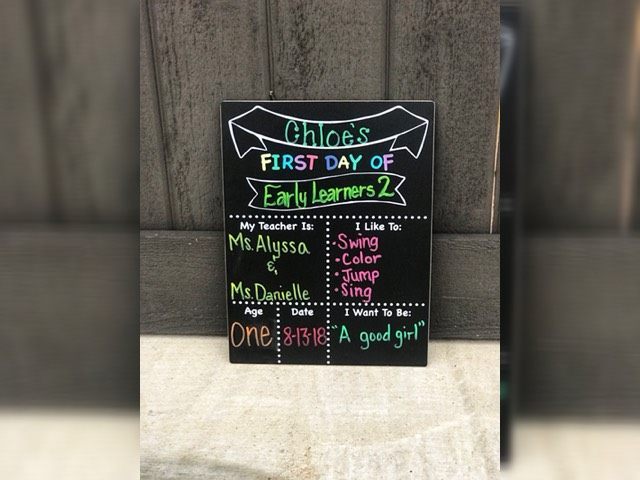 Chloe's
FIRST DAY OF
Early Learners 2
My Teacher Is:
Ms. Alyssa
&
Ms. Danielle
I Like To:
• Swing
• Color
• Jump
• Sing
Age
One
Date
8-13-18
I Want To Be:
"A good girl"